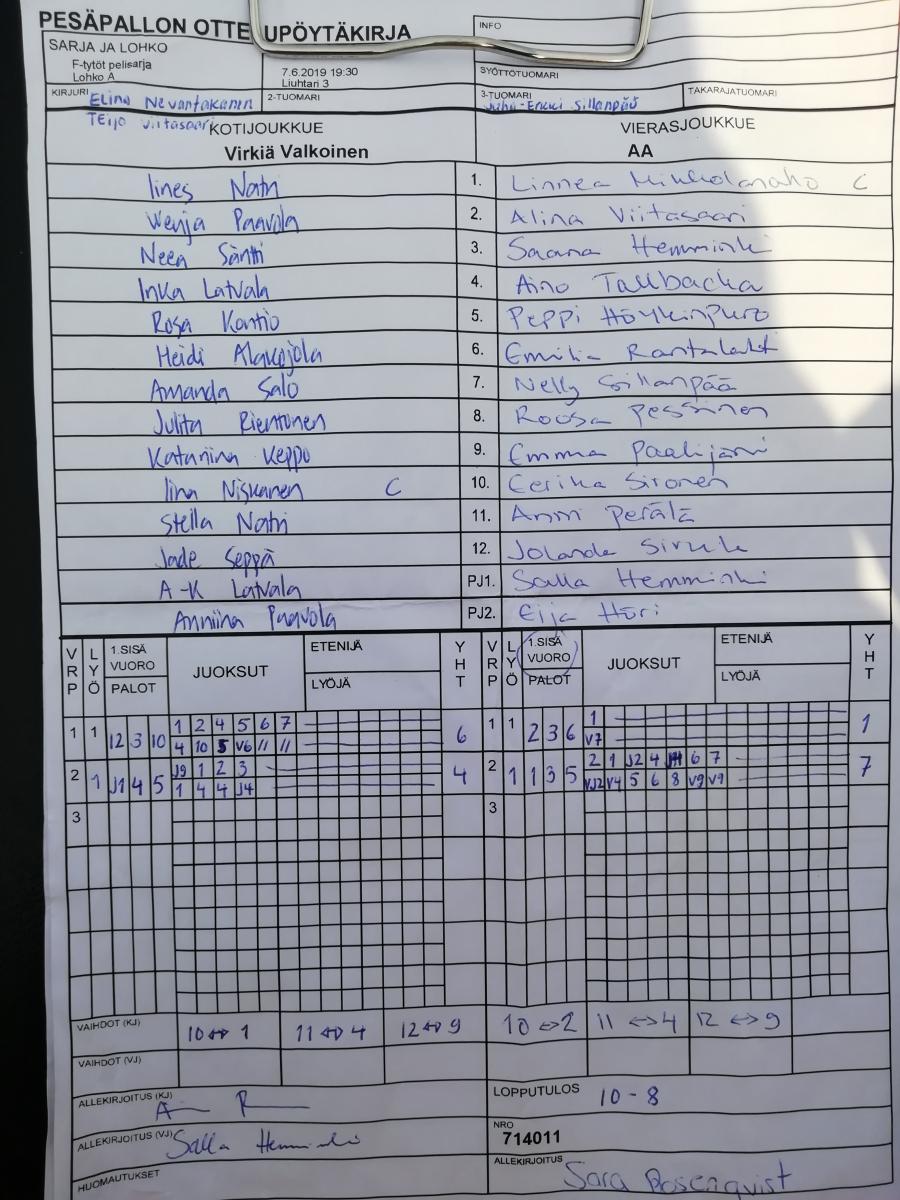 PESÄPALLON OTTE UPÖYTÄKIRJA
INFO
SARJA JA LOHKO
F-tytöt pelisarja
Lohko A
7.6.2019 19:30
Liuhtari 3
SYÖTTÖTUOMARI
KIRJURI Elina Nevantakanen
2-TUOMARI
3-TUOMARI
Juha-Erkki Sillanpää
TAKARAJATUOMARI
TEijo Viitasaari
KOTIJOUKKUE VIERASJOUKKUE
Virkiä Valkoinen AA
Iines Natri 1. Linnea Mikkolanaho C
Venja Paavola 2. Alina Viitasaari
Neea Säntti 3. Saana Hemminki
Inka Latvala 4. Aino Tallbacka
Rosa Kontio 5. Peppi Höykinpuro
Heidi Alakojola 6. Emilia Rantalahti
Amanda Salo 7. Nelly Sillanpää
Julita Rientonen 8. Roosa Pessinen
Katariina Keppo 9. Emma Paalijärvi
Iina Niskanen C 10. Eerika Sironen
Stella Natri 11. Anni Perälä
Jade Seppä 12. Jolanda
A-K Latvala PJ1. Salla Hemminki
Anniina Paavola PJ2. Eija Höri
VRP LYÖ 1.SISÄ VUORO PALOT JUOKSUT ETENIJÄ LYÖJÄ YHT VRP LYÖ 1.SISÄ VUORO PALOT JUOKSUT ETENIJÄ LYÖJÄ YHT
1 1 12 3 10 1 2 4 5 6 7 6 1 1 2 3 6 1 1
4 10 5 V6 11 11 V7
2 1 J1 4 5 J9 1 2 3 4 2 1 1 3 5 2 1 J2 4 6 7 7
1 4 4 J4 VJ2 V4 5 6 8 V9 V9
3 3
VAIHDOT (KJ) 10 ↔ 1 11 ↔ 4 12 ↔ 9 10 ↔ 2 11 ↔ 4 12 ↔ 9
VAIHDOT (VJ)
ALLEKIRJOITUS (KJ) LOPPUTULOS 10 - 8
ALLEKIRJOITUS (VJ) Salla Hemminki NRO
714011
HUOMAUTUKSET ALLEKIRJOITUS Sara Rosenqvist